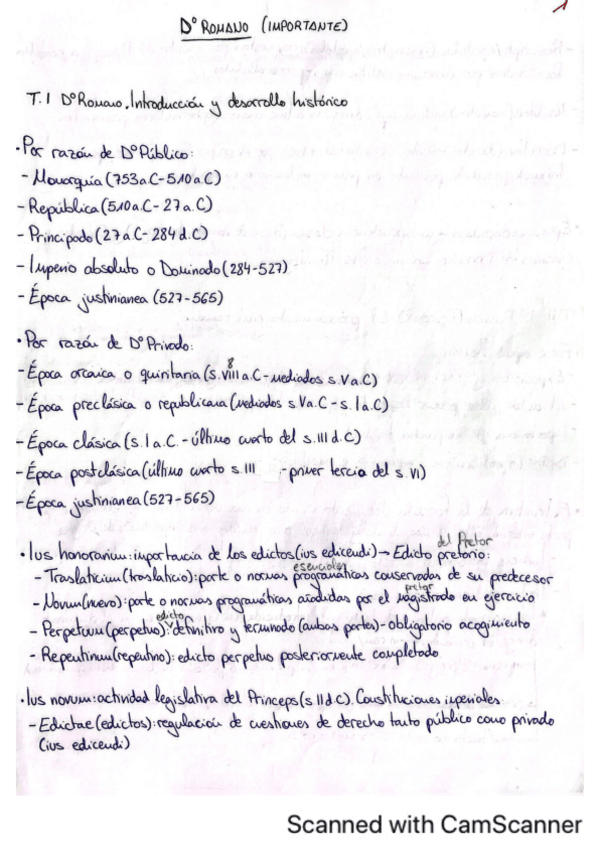 1
Dº ROMANO (IMPORTANTE)
T.1 Dº Romano. Introducción y desarrollo histórico
· Por razón de Dº Público:
- Monarquía (753 a.C - 510 a.C)
- República (510 a.C - 27 a.C)
- Principado (27 a.C - 284 d.C)
- Imperio absoluto o Dominado (284-527)
- Época justinianea (527-565)
· Por razón de Dº Privado:
8
- Época arcaica o quiritaria (s.VIII a.C - mediados s.V a.C)
- Época preclásica o republicana (mediados s.V a.C - s.I a.C)
- Época clásica (s.I a.C. - último cuarto del s.III d.C)
- Época postclásica (último cuarto s.III - primer tercio del s.VI)
- Época justinianea (527-565)
del Pretor
· Ius honorarium: importancia de los edictos (ius edicendi) → Edicto pretorio:
esenciales
- Traslaticium (traslaticio): parte o normas programáticas conservadas de su predecesor
pretor
- Novum (nuevo): parte o normas programáticas añadidas por el magistrado en ejercicio
edicto
- Perpetuum (perpetuo): definitivo y terminado (ambas partes) - obligatorio acogimiento
- Repentinum (repentino): edicto perpetuo posteriormente completado
· Ius novum: actividad legislativa del Princeps (s.II d.C). Constituciones imperiales
- Edictae (edictos): regulación de cuestiones de derecho tanto público como privado
(ius edicendi)
Scanned with CamScanner